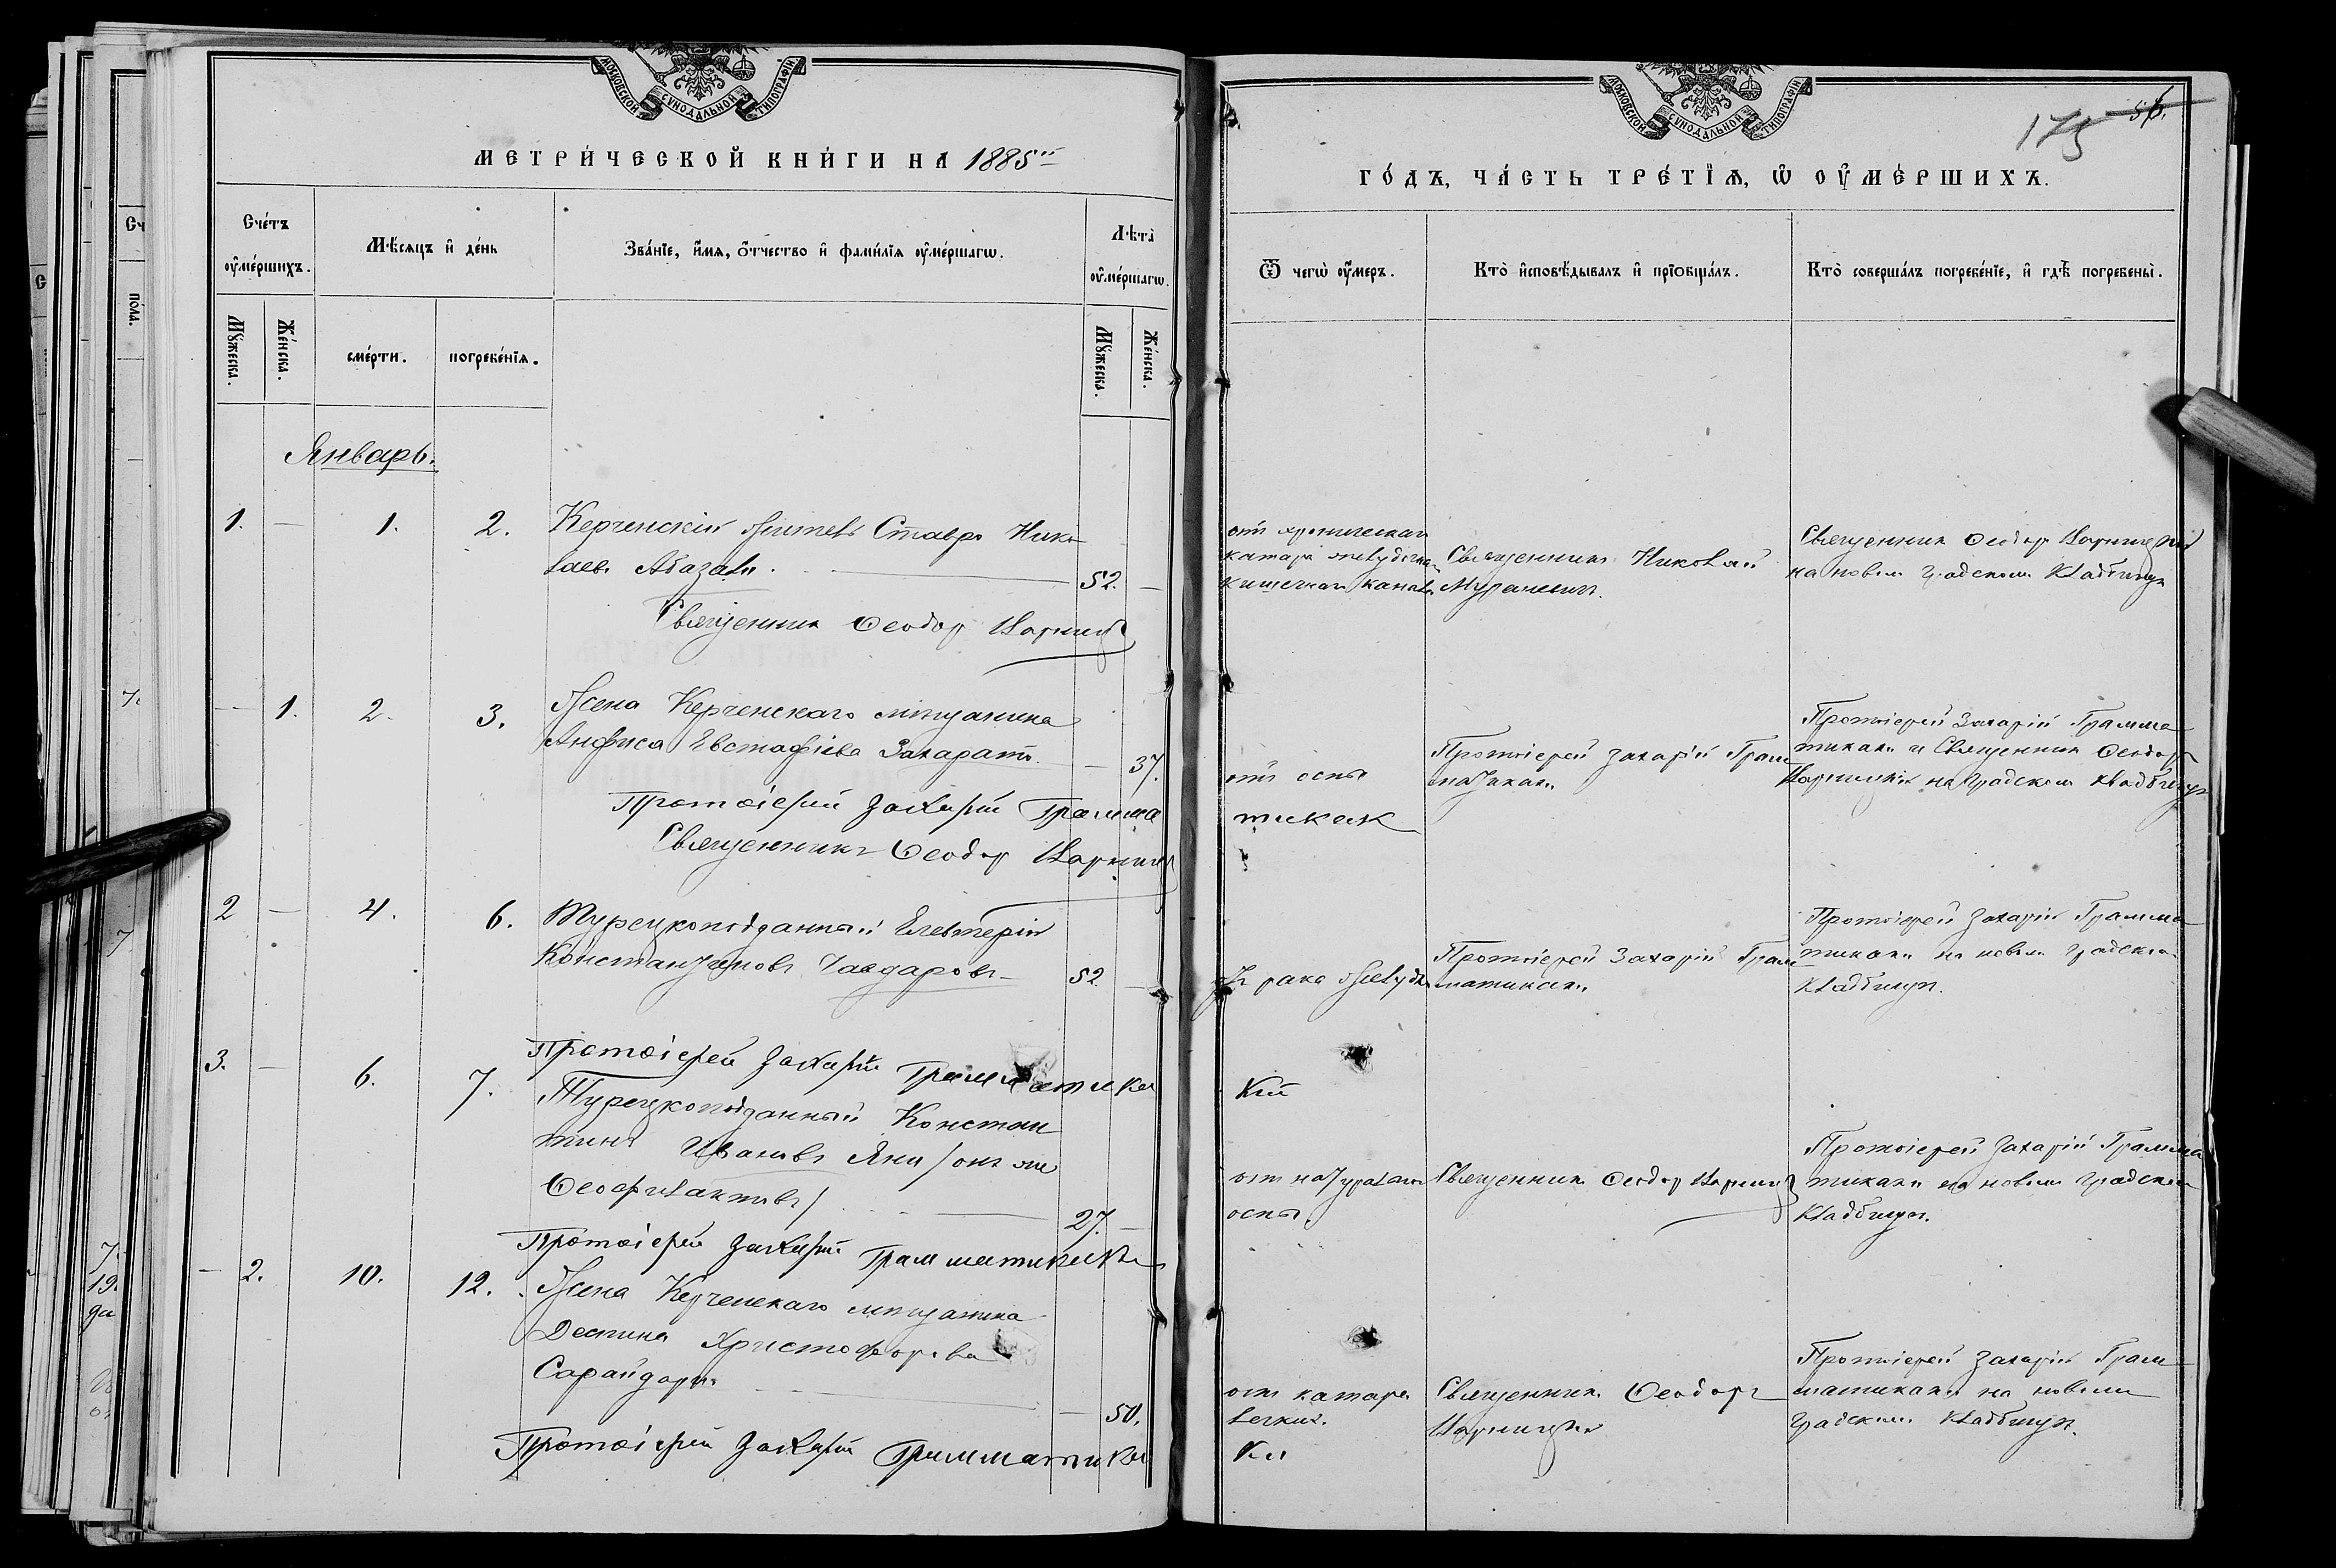 МОСКОВСКОЙ СѴНОДАЛЬНОЙ ТИПОГРАФІИ
МЕТРИ́ЧЕСКОЙ КНИ́ГИ НА 1885й
Сче́тъ ᲂу҆ме́ршихъ.
Мꙋжеска.
Же́нска.
Мѣ́сяцъ и҆ де́нь
сме́рти.
погребе́нїѧ.
Зва́нїе, и҆́мѧ, ѻ҆́тчество и҆ фами́лїѧ ᲂу҆ме́ршагѡ.
Лѣ́та ᲂу҆ме́ршагѡ.
Мꙋжеска.
Же́нска.
Январь.
1. — 1. 2. Керченскій житель Ставро Нико
лаевъ Абазали. — 52. —
Священникъ Ѳеодоръ Царниц
— 1. 2. 3. Жена Керченскаго мѣщанина
Анфиса Евстафіева Захарато. — 37.
Протоіерей Захарій Грамма
Священникъ Ѳеодоръ Царниц
2 — 4. 6. Турецкоподданный Елевтерій
Константиновъ Чавдаровъ — 52 —
Протоіерей Захарій Граммати ка
3. — 6. 7. Турецкоподданный Констан
тинъ Ивановъ Яни /онъ же
Ѳеофилактовъ/ — 27. —
Протоіерей Захарій Грамматикака
— 2. 10. 12. Жена Керченскаго мѣщанина
Деспина Христофорова
Сарайдари — 50.
Протоіерей Захарій Граммати ка
МОСКОВСКОЙ СѴНОДАЛЬНОЙ ТИПОГРАФІИ
175 56.
ГО́ДЪ, ЧА́СТЬ ТРЕ́ТЇѦ, Ѡ҆ ᲂУ҆МЕ́РШИХЪ.
Ѿ чегѡ̀ ᲂу҆́меръ.
Кто̀ и҆сповѣ́дывалъ и҆ прїѡбща́лъ.
Кто̀ соверша́лъ погребе́нїе, и҆ гдѣ̀ погребены̀.
отъ хроническаго
катара желудочно
кишечнаго канала
Священникъ Николай
Мураневичъ.
Священникъ Ѳеодоръ Царницкій
на новомъ градскомъ кладбищѣ
отъ оспы
Протоіерей Захарій Грам
матикаки
Протоіерей Захарій Грамма
тикаки и Священникъ Ѳеодоръ
Царницкій на градскомъ кладбищѣ
тикак
отъ рака желудка
Протоіерей Захарій Грам
матикаки
Протоіерей Захарій Грамма
тикаки на новомъ градскомъ
кладбищѣ.
кій
отъ натуральной
оспы.
Священникъ Ѳеодоръ Царниц
Протоіерей Захарій Грамма
тикаки на новомъ градскомъ
кладбищѣ.
отъ катара
легкихъ.
Священникъ Ѳеодоръ
Царницкій
Протоіерей Захарій Грам
матикаки на новомъ
градскомъ кладбищѣ.
ки